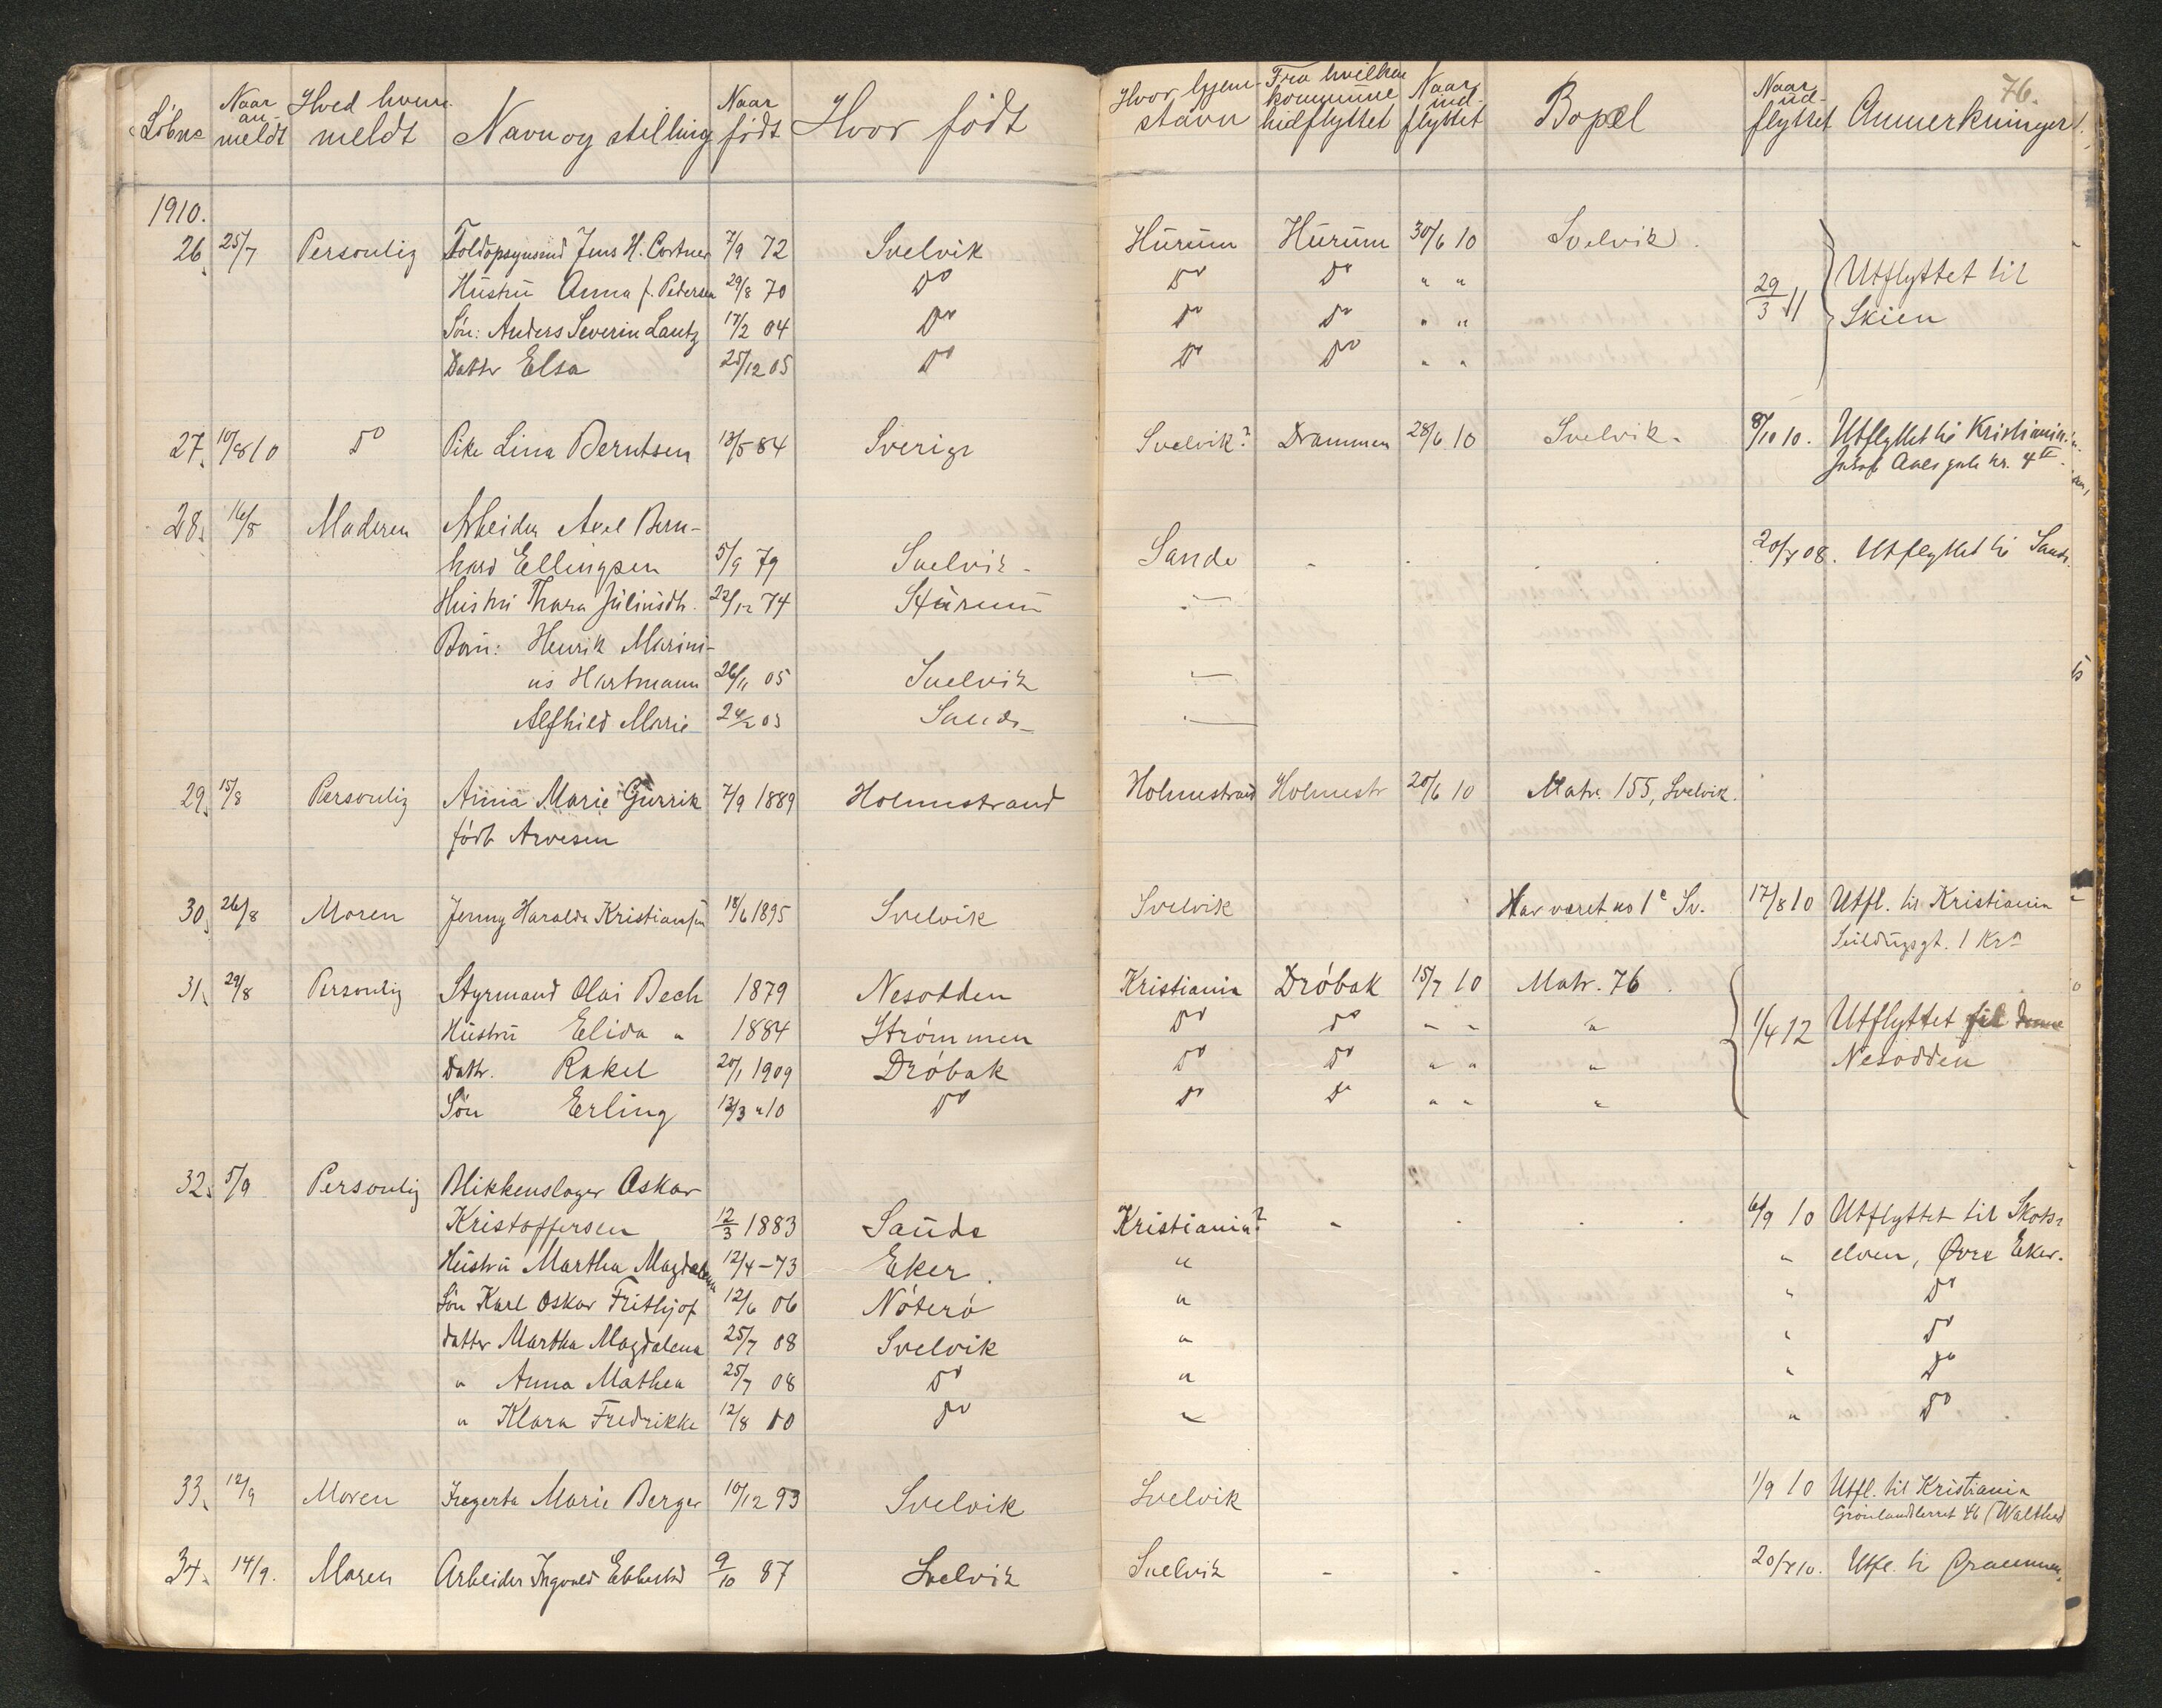 76.
Löbne Naar anmeldt Hved hvem meldt Navn og stilling Naar født Hvor födt Hvor hjemstavn Fra hvilken kommune hidflyttet Naar indflyttet Bopæl Naar udflyttet Anmerkninger
1910.
26. 25/7 Personlig Toldopsynsmd Jens H. Cortner 7/9 72 Svelvik Hurum Hurum 30/6 10 Svelvik.
Hustru Anna f. Pedersen 29/8 70 Do Do Do " " 29/3 11 Utflyttet til
Sön: Anders Severin Lautz 17/2 04 Do Do Do " " Skien
Datter Elsa 25/12 05 Do Do Do " "
27. 10/8 10 Do Pike Lina Berntsen 13/5 84 Sverige Svelvik? Drammen 28/6 10 Svelvik. 8/10 10. Utflyttet til Kristiania.
Jakob Aals gate nr. 4 II.
28. 16/8 Moderen Arbeider Axel Bern-
hard Ellingsen 5/9 79 Svelvik - Sande - . . . 20/7 08. Utflyttet til Sande.
Hustru Thora Juliusdtr. 22/12 74 Hurum —
Börn: Henrik Marini-
us Hartmann 26/11 05 Svelvik —
Alfhild Marie 24/2 03 Sande —
29. 15/8 Personlig Anna Marie Gurrik 7/9 1889 Holmestrand Holmestrand Holmestr 20/6 10 Matr. 155, Svelvik.
födt Arvesen
30. 26/8 Moren Jenny Haralda Kristiansen 18/6 1895 Svelvik Svelvik Har været no 1e Sv. 17/8 10 Utfl. til Kristiania
Seildugsgt. 1 Kra
31. 29/8 Personlig Styrmand Olai Bech 1879 Nesodden Kristiania Dröbak 15/7 10 Matr. 76.
Hustru Elida " 1884 Strömmen Do Do " " " 1/4 12 Utflyttet til
Dattr. Rakel 20/1 1909 Dröbak Do Do " " " Nesodden
Sön Erling 13/3 "10 Do Do Do " " "
32. 5/9 Personlig Blikkenslager Oskar
Kristoffersen 12/3 1883 Sande Kristiania? - . . . 6/9 10 Utflyttet til Skots-
Hustru Martha Magdalena 12/4 -73 Eker. " " elven, Øvre Eker.
Sön Karl Oskar Frithjof 12/6 06 Nöterö " " Do
datter Martha Magdalena 25/7 08 Svelvik " " Do
" Anna Mathea 25/7 08 Do " " Do
" Klara Fredrikke 12/8 10 Do " " Do.
33. 12/9 Moren Ingerta Marie Berger 10/12 93 Svelvik Svelvik 1/9 10 Utfl. til Kristiania
Grönlandsleret 46 (Walthed
34. 14/9. Moren Arbeider Ingvald Ebbestad 9/10 87 Svelvik Svelvik - - - 20/7 10. Utfl. til Drammen.